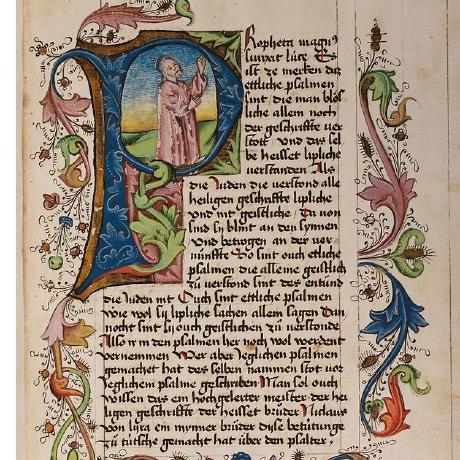 Propheta magnus
surrexit luce Es
ist ze mercken das
ettliche psalmen
sint die man blos
liche allein noch
der geschrifte ver
stott und das sel
be heisset lipliche
verstanden Als
die Juden die verstond alle
heiligen geschrifte lipliche
und nit geistliche Da von
sind sy blint an den synnen
und betrogen an der ver
nunffte So sint ouch etliche
psalmen die alleine geistlich
zu verstond sint des enkund
die Juden nit Ouch sint ettliche psalmen
wie wol sy lipliche sachen allem sagen Dan
nocht sint sy ouch geistlichen zu verstonde
Also in den psalmen her noch wol werdent
vernemmen Wer aber yeglichen psalmen
gemachet hat des selben nammen stot vor
yeglichem psalme geschriben Man sol ouch
wissen das ein hochgelerter meister der hei
ligen geschrifft der heisset bruder Niclaus
von lyra ein mynner bruder dyse betutunge
zu tutsche gemacht hat uber den psalter